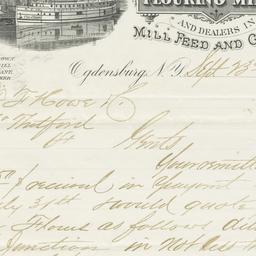 FLOURING MI
AND DEALERS IN
MILL FEED AND G
Ogdensburg, N.Y. Sept 23
F Howe
Thetford
Vt
Gents
Your remitt
received in payment
July 31st would quote
Flour as follows
Junction in not less th